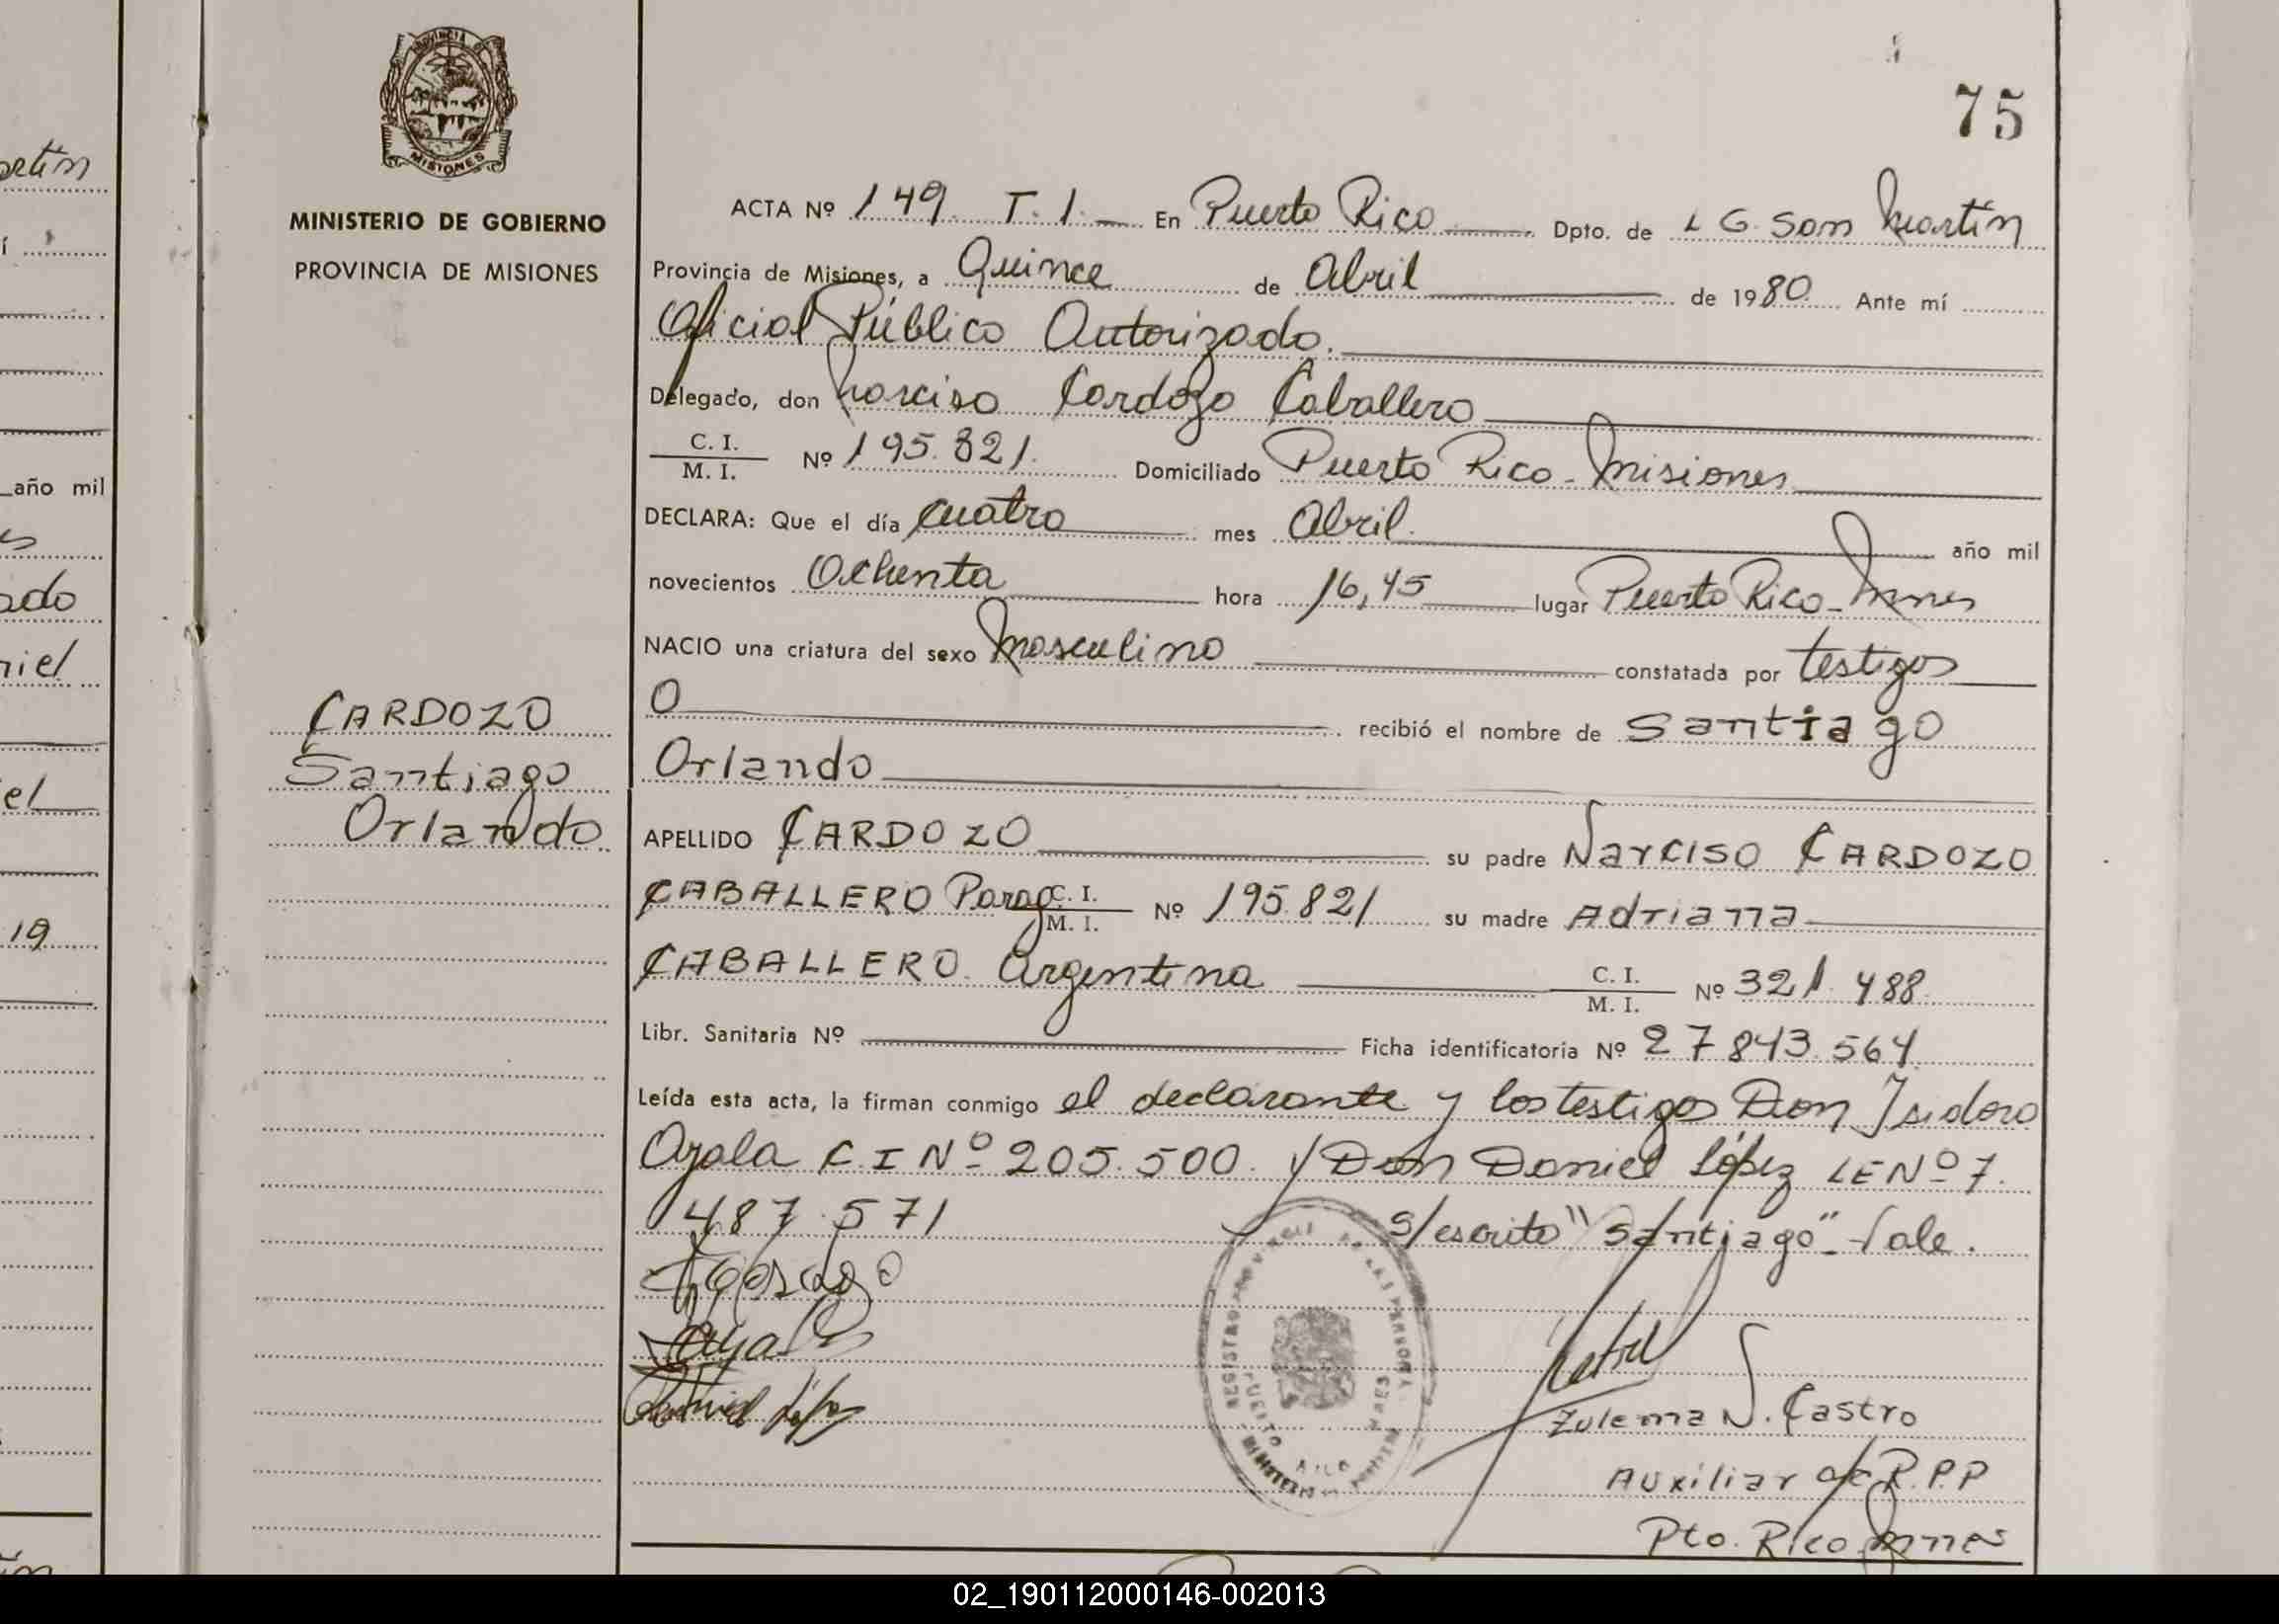 PROVINCIA DE
MISIONES
MINISTERIO DE GOBIERNO
PROVINCIA DE MISIONES
CARDOZO
Santiago
Orlando
75
ACTA Nº 149 T. 1. — En Puerto Rico Dpto. de L G. San Martín
Provincia de Misiones, a Quince de Abril de 1980. Ante mí
Oficial Público Autorizado.
Delegado, don Narciso Cardozo Caballero
C. I. / M. I. Nº 195.821. Domiciliado Puerto Rico - Misiones
DECLARA: Que el día cuatro mes Abril. año mil
novecientos Ochenta hora 16,45 lugar Puerto Rico - Mnes
NACIO una criatura del sexo Masculino constatada por testigos
O recibió el nombre de Santiago
Orlando
APELLIDO CARDOZO su padre Narciso CARDOZO
CABALLERO Parag. C. I. / M. I. Nº 195.821 su madre Adriana
CABALLERO. Argentina C. I. / M. I. Nº 321.488
Libr. Sanitaria Nº Ficha identificatoria Nº 27.843.564.
Leída esta acta, la firman conmigo el declarante y los testigos Don Isidoro
Ayala C. I Nº 205.500. y Don Daniel López LE Nº 7.
487.571 S/escrito "Santiago" - Vale.
Ayala
Daniel López
REGISTRO PROVINCIAL DE LAS PERSONAS
PUERTO RICO MNES
MINISTERIO
Zulema N. Castro
Auxiliar de R.P.P
Pto. Rico Mnes
año mil
ado
niel
el
19
02_190112000146-002013